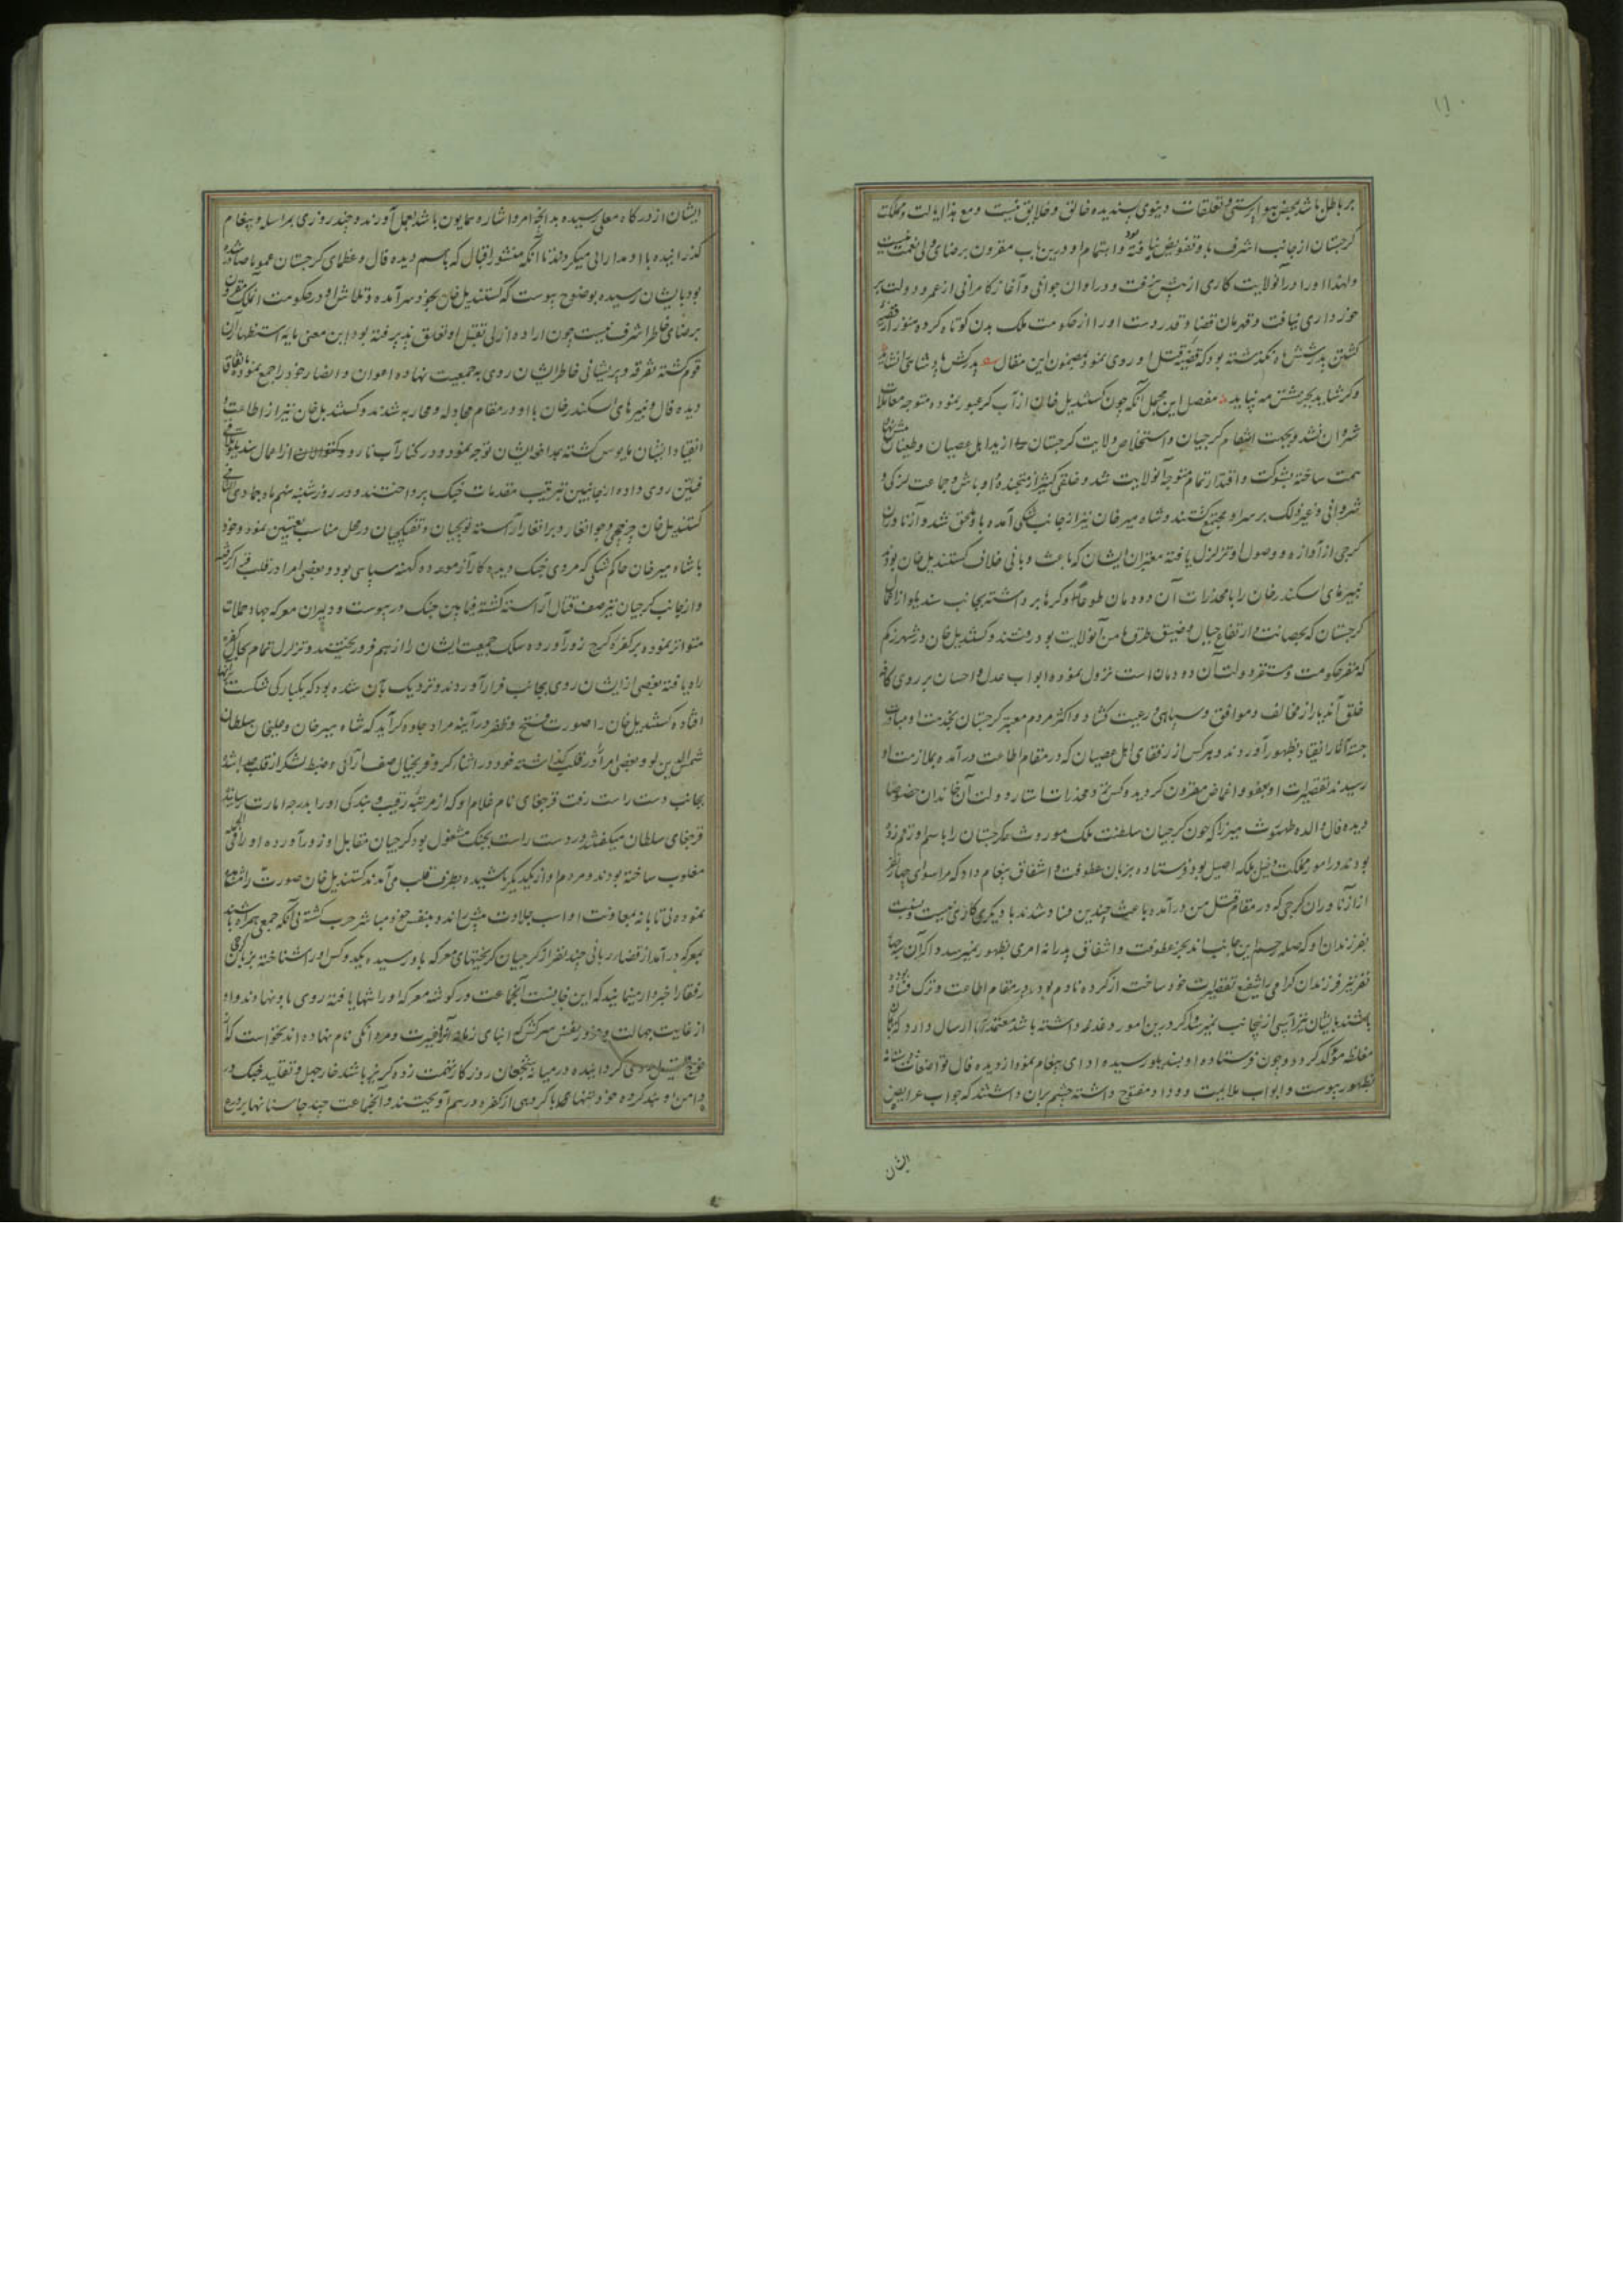 ۱۱۰
بر باطل باشد محض هوا پرستی و تعلقات دنیوی پسندیده خالق و خلایق نیست و مع هذا ایالت و مملکت
گرجستان از جانب اشرف باو تفویض نیافته بود و اهتمام او درین باب مقرون برضای ولی نعمت نیست
ولهذا او را در آنولایت کاری از پیش نرفت و در اوان جوانی و آغاز کامرانی از عمر و دولت بر
خورداری نیافت و قهرمان قضا و قدر دست او را از حکومت ملک بدن کوتاه کرده هنوز از قضیه
کشتن پدرش شش ماه نگذشته بود که قضیه قتل او روی نمود بمضمون این مقال پدرکش پادشاهی را نشاید
وگر شاید بجز شش مه نپاید مفصل این مجمل آنکه چون کستندیل خان از آب کر عبور نموده متوجه معاملات
شروان نشد و بجهت انتقام گرجیان و استخلاص ولایت گرجستان از ید اهل عصیان و طغیان
همت ساخته بشوکت و اقتدار تمام متوجه آنولایت شد و خلقی کثیر از متجنده و اوباش و جماعت لزکی و
شروانی و غیر ذلک بر سر او مجتمع گشتند و شاه میر خان نیز از جانب شکی آمده باو ملحق شد و ازناوران
گرجی از آوازه وصول او تزلزل یافته معتبران ایشان که باعث و بانی خلاف کستندیل خان بودند
نبیرهای اسکندر خان را با مخدرات آن دودمان طوعا او کرها برداشته بجانب سندیلو از اعمال
گرجستان که بحصانت و ارتفاع جبال و ضیق طرق مامن آنولایت بود رفتند و کستندیل خان در شهر زکم
که مقر حکومت و مستقر دولت آن دودمان است نزول نموده ابواب عدل و احسان بر روی کافه
خلق آندیار از مخالف و موافق و سپاهی و رعیت گشاد و اکثر مردم معتبر گرجستان بخدمت او مبادرت
جسته آثار انقیاد بظهور آوردند و هر کس از رفقای اهل عصیان که در مقام اطاعت درآمده بملازمت او
رسیدند تقصیرات او بعفو و اغماض مقرون گردیده کس نزد مخدرات استار دولت آن خاندان خصوصا
دیده فال والده طهمورث میرزا که چون گرجیان سلطنت ملک موروث گرجستان را باسم او رقم زده
بودند در امور مملکت دخیل بلکه اصیل بود فرستاده بزبان عطوفت و اشفاق پیغام داد که مرا سوای چهار نفر
از ازناوران گرجی که در مقام قتل من درآمده باعث چندین فساد شدند با دیگری کاری نیست و نسبت
بفرزندان او که صله رحم این جانب اند بجز عطوفت و اشفاق پدرانه امری بظهور نمیرسد و اگر آن چهار
نفر نیز فرزندان گرامی را شفیع تقصیرات خود ساخته از کرده نادم بوده در مقام اطاعت و ترک فساد
باشند بایشان نیز آسیبی از اینجانب نمیرسد و اگر درین امور دغدغه داشته باشد معتمدی ارسال دارد که بایمان
مغلظه مؤکد گردد و چون فرستاده او بدیشان رسیده ادای پیغام نمود از دیده فال تواضعات دوستانه
بظهور پیوست و ابواب ملایمت و وداد مفتوح داشته چشم بران داشتند که جواب عرایض
ایشان
ایشان از درگاه معلی رسیده بدانچه امر و اشاره همایون باشد بعمل آورند و چند روزی بمراسله و پیغام
گذرانیده با او مدارائی میکردند تا آنکه منشور اقبال که باسم دیده فال و عظمای گرجستان عموما صادر شده
بود بایشان رسیده بوضوح پیوست که کستندیل خان بخود سر آمده و تلاش او در حکومت آن ملک مقرون
برضای خاطر اشرف نیست چون اراده ازلی بقتل او تعلق پذیرفته بود این معنی مایه استظهار آن
قوم گشته تفرقه و پریشانی خاطر ایشان روی به جمعیت نهاده اعوان و انصار خود را جمع نموده باتفاق
دیده فال و نبیرهای اسکندر خان با او در مقام مجادله و محاربه شدند و کستندیل خان نیز از اطاعت و
انقیاد ایشان مایوس گشته بمدافعه ایشان توجه نمود و در کنار آب نارود از اعمال سندیلو تلاقی
فئتین روی داده از جانبین بترتیب مقدمات جنگ پرداختند و در روز شنبه نهم ماه جمادی الثانی
کستندیل خان چرخچی و جوانغار و برانغار آراسته توپچیان و تفنگچیان در محل مناسب تعیین نمود و خود
با شاه میر خان حاکم شکی که مردی جنگ دیده کار آزموده و کهنه سپاهی بود و بعضی امرا در قلب قرار گرفته
و از جانب گرجیان نیز صف قتال آراسته گشته فیمابین جنگ در پیوست و دلیران معرکه جهاد حملات
متواتر نموده بر کفره گرج زور آورده سلک جمعیت ایشان را از هم فرو ریختند و تزلزل تمام بحال کفره
راه یافته بعضی از ایشان روی بجانب فرار آوردند و نزدیک بآن شده بود که یکبارگی شکست
افتاده کستندیل خان را صورت فتح و ظفر در آینه مراد جلوه گر آید که شاه میر خان و سلطان
شمس الدین لو و بعضی امرا را در قلب گذاشته خود در اثنای کر و فر بخیال صف آرائی و ضبط لشکر از قلب جدا شده
بجانب دست راست رفت قرجغای نام غلام او که از مرتبه رقیت و بندگی او را بدرجه امارت رسانیده
قرجغای سلطان میگفتند در دست راست بجنگ مشغول بود گرجیان مقابل او زور آورده او را فی الجمله
مغلوب ساخته بودند و مردم او از یکدیگر پاشیده بطرف قلب می آمدند کستندیل خان صورت را مشاهده
نموده بی تابانه بمعاونت او اسب جلادت پیش راند و بنفس خود مباشر حرب گشته بی آنکه جمعی همراه باشند
بمعرکه درآمد از قضاء ربانی چند نفر از گرجیان گریختهای معرکه باو رسیده یکدو کس او را شناخته بزبان گرجی
رفقا را خبردار مینمایند که این خانست آنجماعت در گوشه معرکه او را تنها یافته روی باو نهادند و او
از غایت جهالت و غرور نفس سرکش که ابنای زمان آنرا غیرت و مردانگی نام نهاده اند نخواست که
گردانیده در میان شجعان روزگار تهمت زده گریز باشد خار جهل و تقلید جنگ در
دامن او بند کرده خود تنها با گروهی از کفره در هم آویختند و آنجماعت چند جا سنانها بر وی